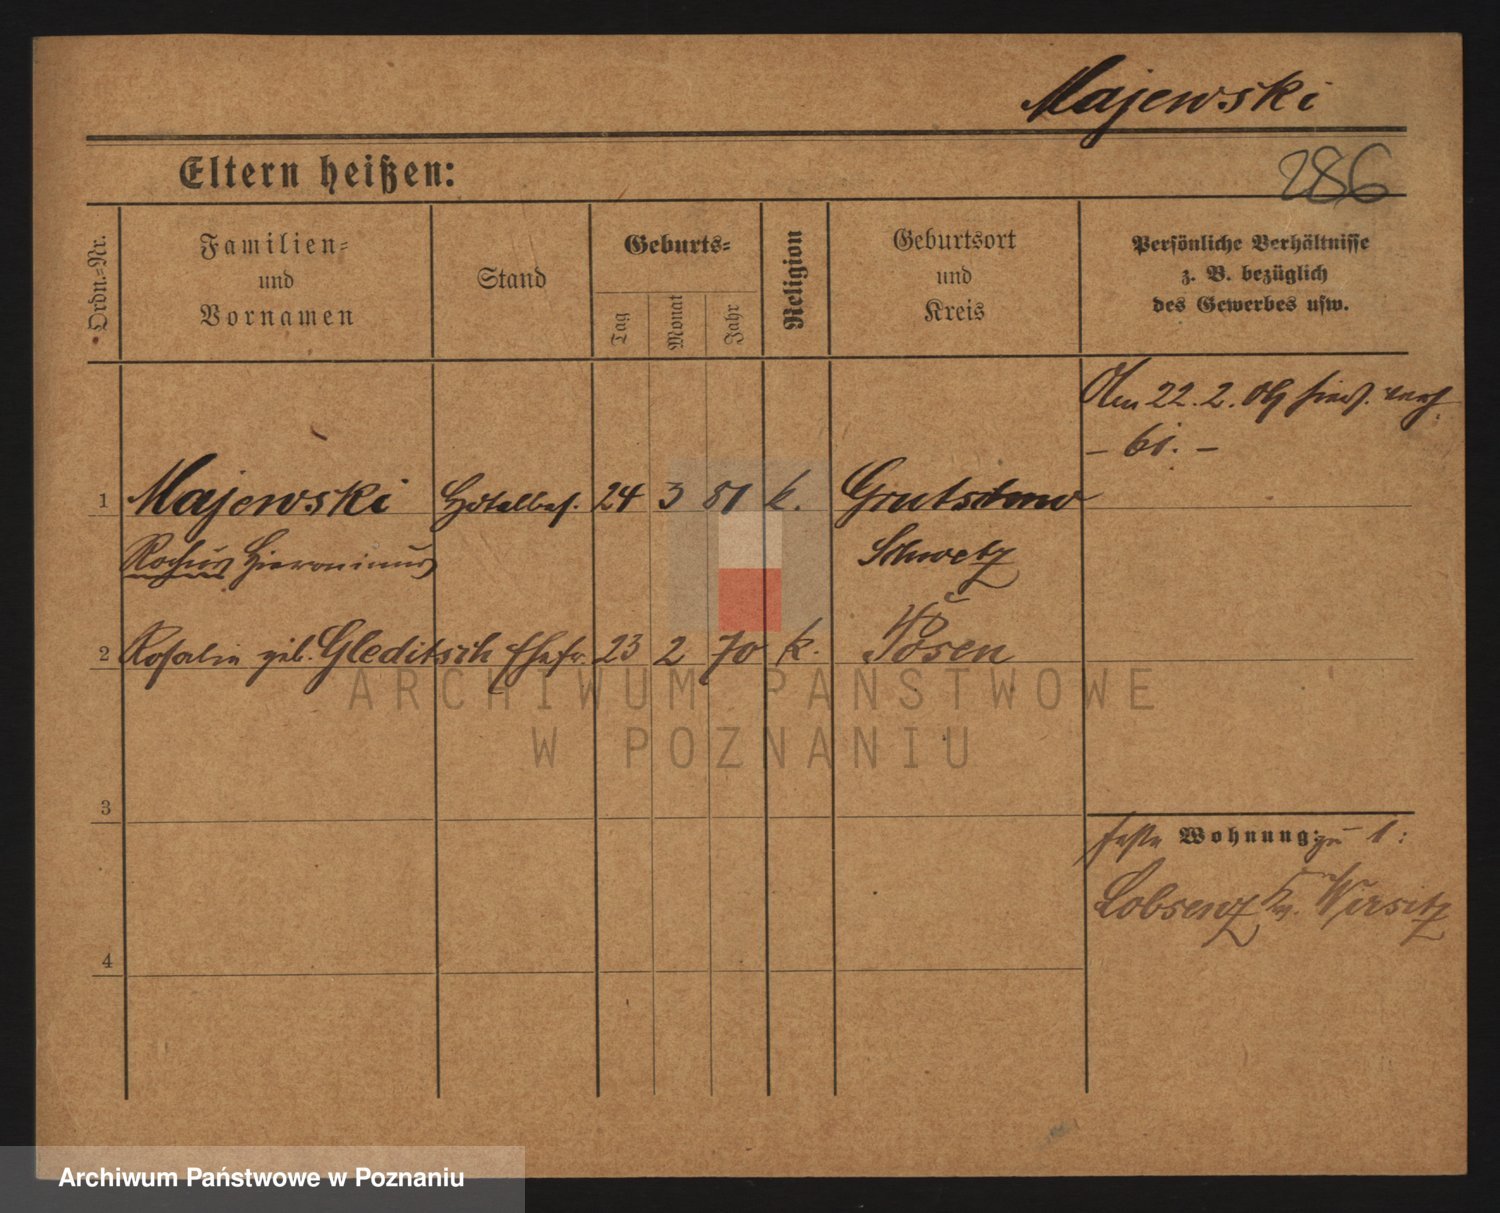 Majewski
Eltern heißen:
286
Ordn.-Nr.
Familien-
und
Vornamen
Stand
Geburts-
Tag
Monat
Jahr
Religion
Geburtsort
und
Kreis
Persönliche Verhältnisse
z. B. bezüglich
des Gewerbes usw.
22. 2. 09
1 Majewski Hotelbes. 24 3 k.
Rochus Hieronimus Schwetz
2 Rosalie geb. Gleditsch Ehefr. 23 2 70 k. Posen
ARCHIWUM PAŃSTWOWE
W POZNANIU
3
feste Wohnung: zu 1:
Lobsenz Kr. Wirsitz
4
Archiwum Państwowe w Poznaniu